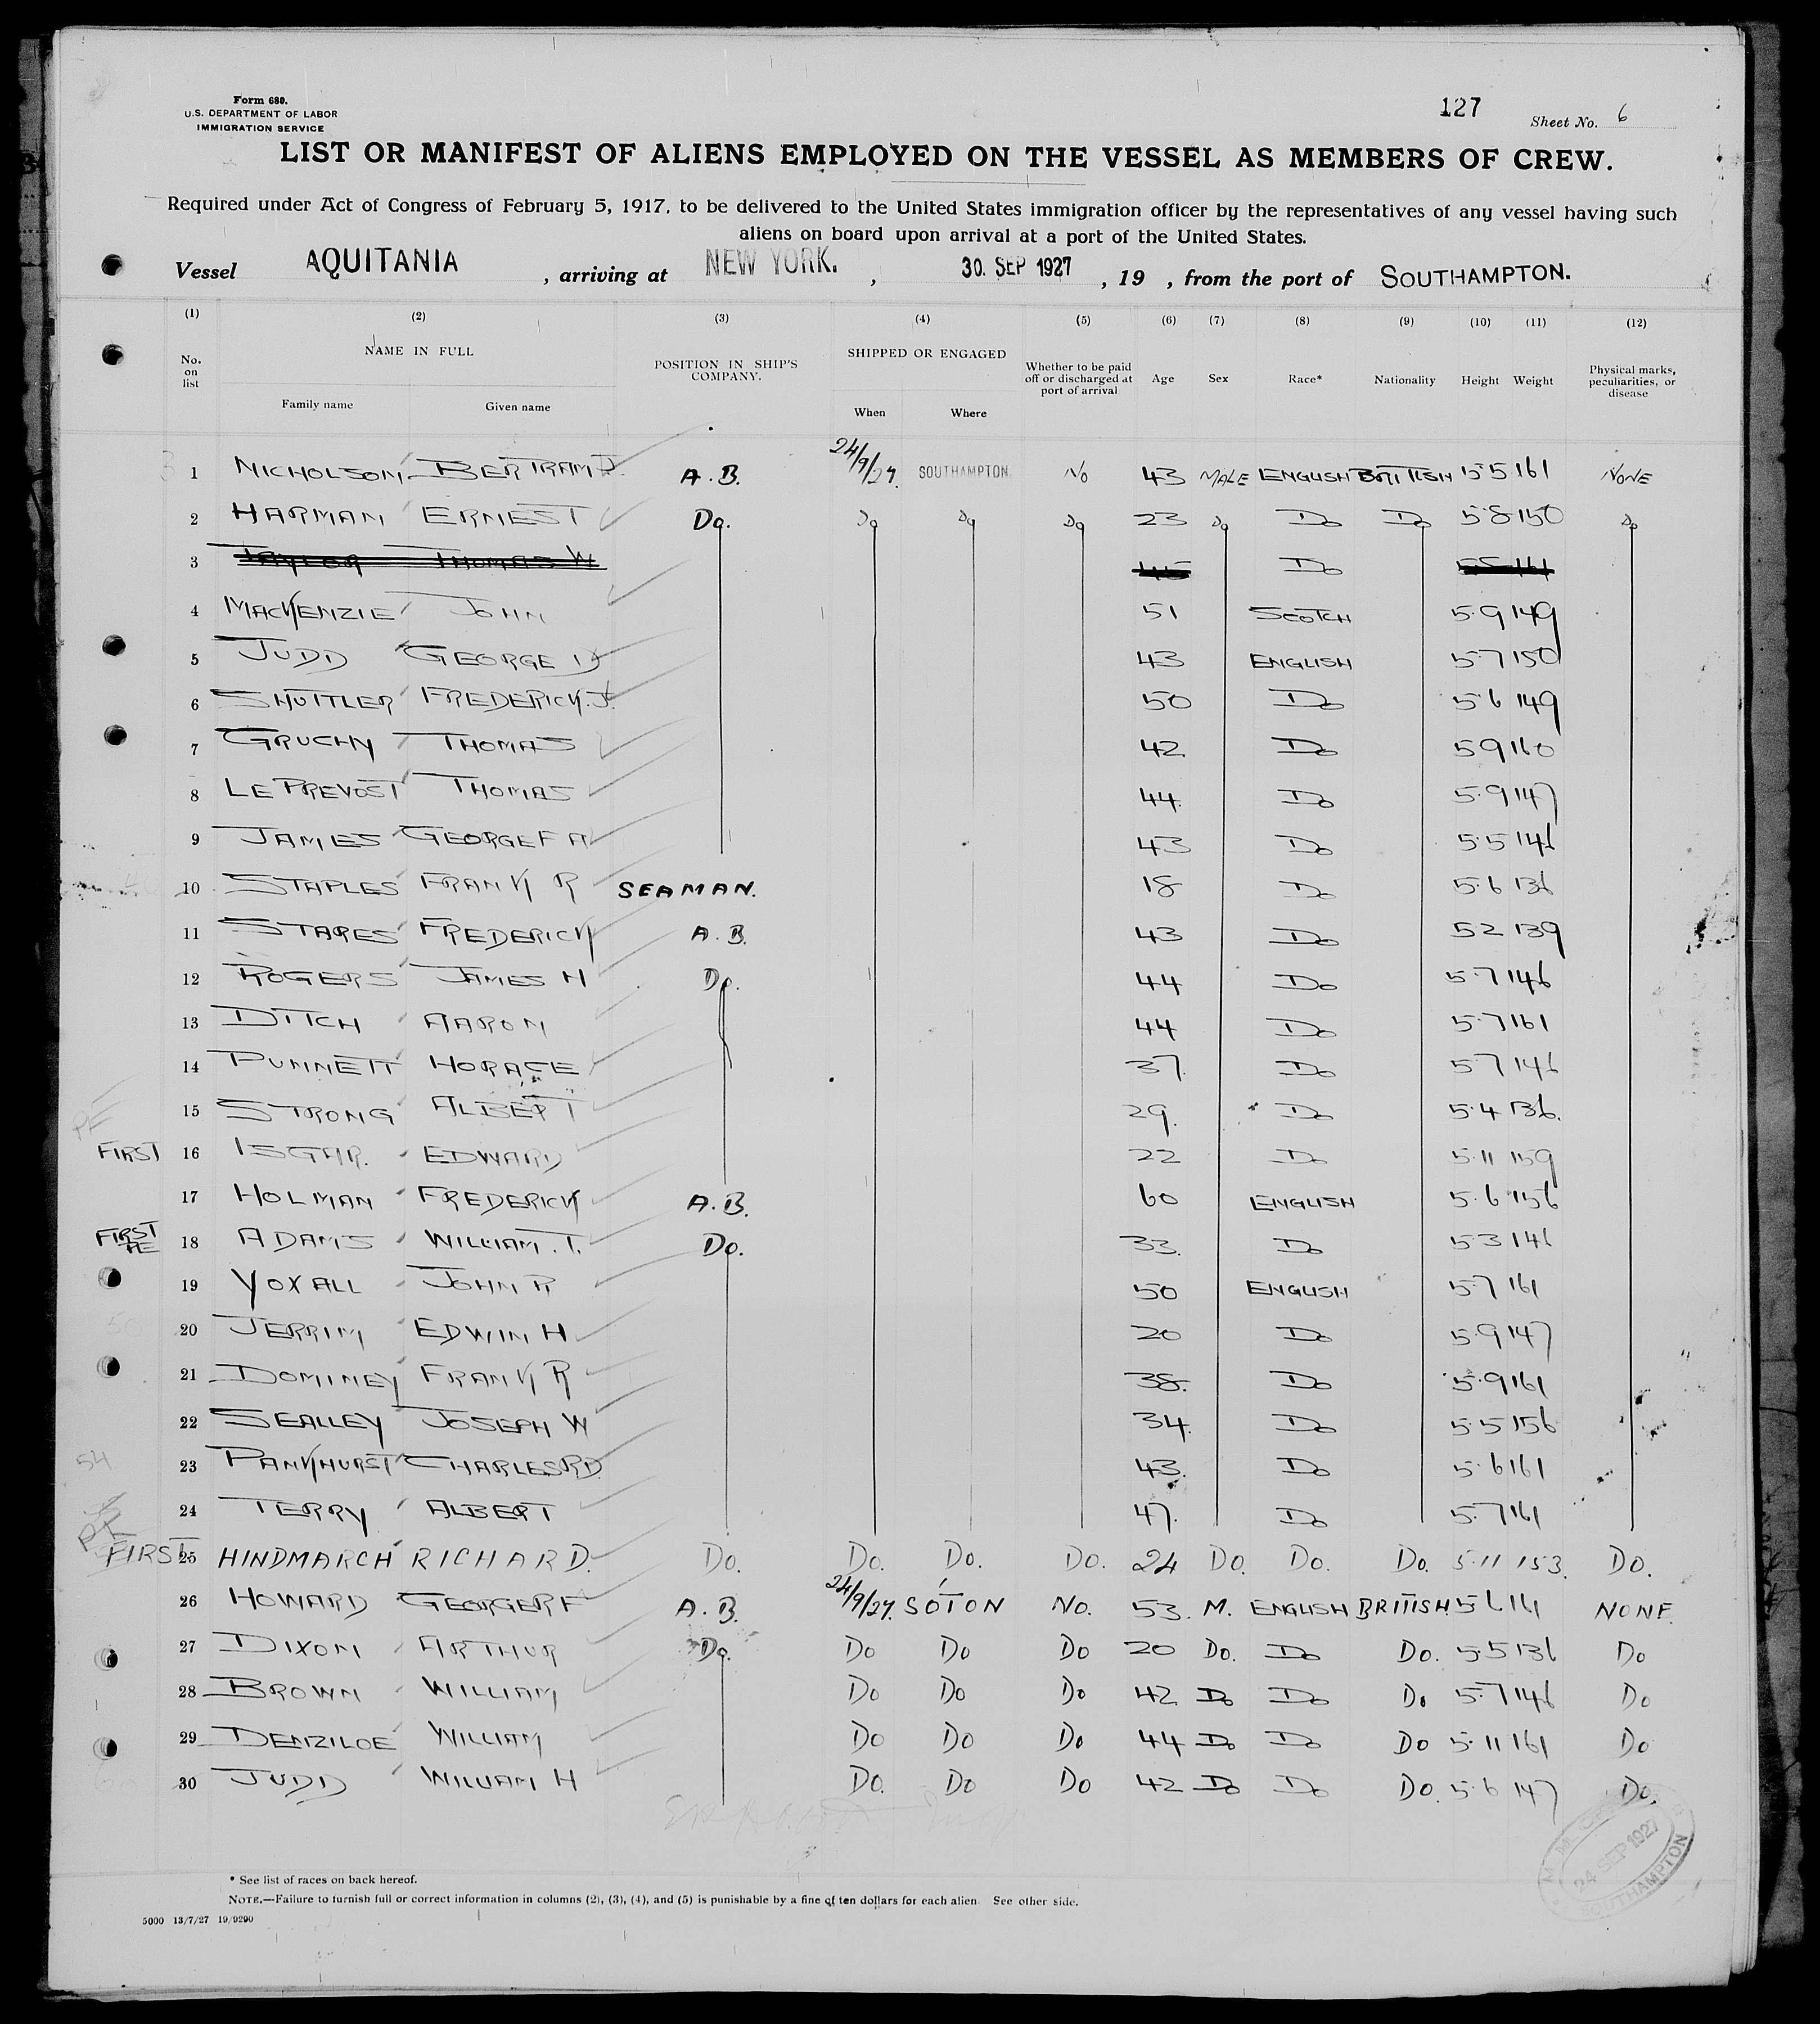 Form 680.
U.S. DEPARTMENT OF LABOR
IMMIGRATION SERVICE
127
Sheet No. 6
LIST OR MANIFEST OF ALIENS EMPLOYED ON THE VESSEL AS MEMBERS OF CREW.
Required under Act of Congress of February 5, 1917, to be delivered to the United States immigration officer by the representatives of any vessel having such
aliens on board upon arrival at a port of the United States.
Vessel AQUITANIA , arriving at NEW YORK. , 30. SEP 1927 , 19 , from the port of SOUTHAMPTON.
(1) (2) (3) (4) (5) (6) (7) (8) (9) (10) (11) (12)
No. on list
NAME IN FULL
Family name Given name
POSITION IN SHIP'S COMPANY.
SHIPPED OR ENGAGED
When Where
Whether to be paid off or discharged at port of arrival
Age Sex Race* Nationality Height Weight
Physical marks, peculiarities, or disease
1 NICHOLSON BERTRAM J. A.B. 24/9/27. SOUTHAMPTON. NO 43 MALE ENGLISH BRITISH 5 5 161 NONE
2 HARMAN ERNEST Do. Do Do Do 23 Do Do Do 5.8 150 Do
3 TAYLOR THOMAS W 45 Do
4 MACKENZIE JOHN 51 SCOTCH 5.9 149
5 JUDD GEORGE D 43 ENGLISH 5.7 150
6 SHUTTLER FREDERICK.J. 50 Do 5.6 149
7 GRUCHY THOMAS 42 Do 5 9 160
8 LE PREVOST THOMAS 44. Do 5.9 147
9 JAMES GEORGE F A 43 Do 5.5 146
10 STAPLES FRANK R SEAMAN. 18 Do 5.6 136
11 STARES FREDERICK A.B. 43 Do 5 2 139
12 ROGERS JAMES H Do. 44 Do 5.7 146
13 DITCH AARON 44 Do 5.7 161
14 PUNNETT HORACE 37. Do 5.7 146
15 STRONG ALBERT 29. Do 5.4 136.
FIRST 16 ISGAR. EDWARD 22 Do 5.11 159
17 HOLMAN FREDERICK A.B. 60 ENGLISH 5.6 156
FIRST 18 ADAMS WILLIAM.T. Do. 33. Do 5 3 146
19 YOXALL JOHN R 50 ENGLISH 5.7 161
20 JERRIM EDWIN H 20 Do 5.9 147
21 DOMINEY FRANK R 38. Do 5.9 161
22 SEALLEY JOSEPH W 34. Do 5.5 156
54 23 PANKHURST CHARLES R D 43. Do 5.6 161
24 TERRY ALBERT 47. Do 5.7 161
FIRST 25 HINDMARCH RICHARD. Do. Do. Do. Do. 24 Do. Do. Do. 5.11 153. Do.
26 HOWARD GEORGE R F A.B. 24/9/27. SO'TON NO. 53. M. ENGLISH BRITISH. 5 6 161 NONE.
27 DIXON ARTHUR Do. Do Do Do 20 Do. Do Do. 5.5 136 Do
28 BROWN WILLIAM Do Do Do 42 Do Do Do 5.7 146 Do
29 DENZILOE WILLIAM Do Do Do 44 Do Do Do 5.11 161 Do
30 JUDD WILLIAM H Do. Do Do 42 Do Do Do. 5.6 147 Do.
24 SEP 1927
SOUTHAMPTON
* See list of races on back hereof.
NOTE.—Failure to furnish full or correct information in columns (2), (3), (4), and (5) is punishable by a fine of ten dollars for each alien. See other side.
5000 13/7/27 19/9290